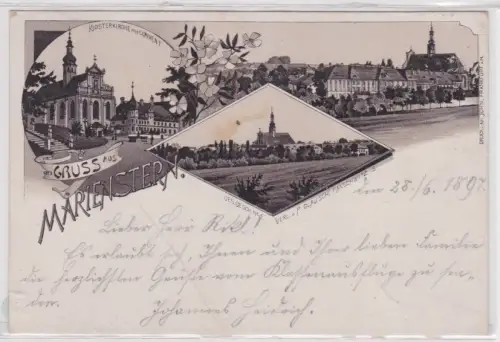 KLOSTERKIRCHE MIT CONVENT
GRUSS AUS
MARIENSTERN.
den 28/6. 1897.
Lieber Herr Rikl!
Es erlaubt sich, Ihnen und Ihrer lieben Familie
die herzlichsten Grüsse vom Klassenausfluge zu sen-
den.
Johannes Heidrich.